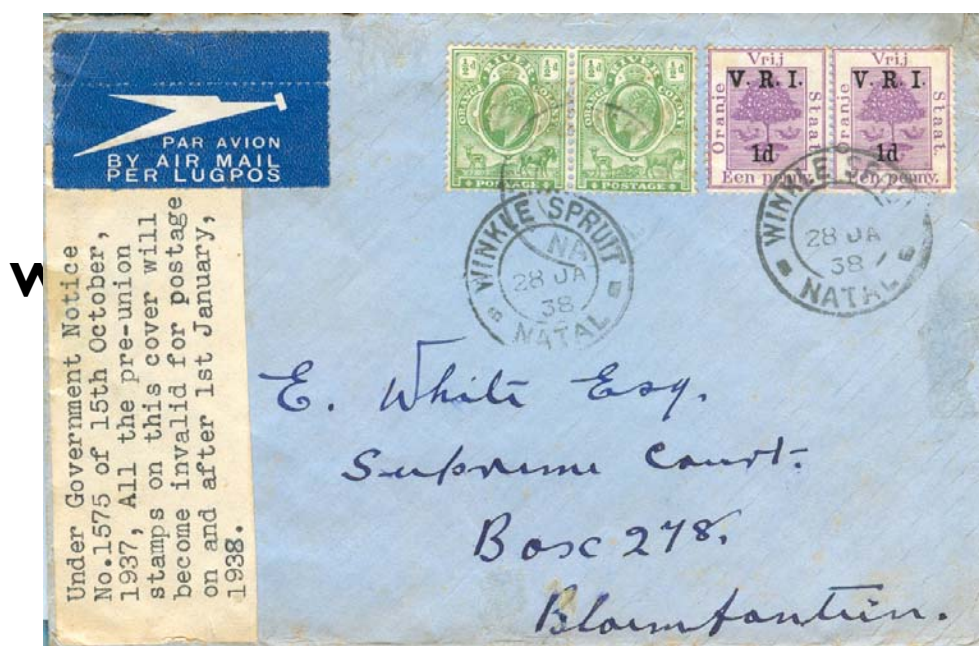 PAR AVION
BY AIR MAIL
PER LUGPOS
½d ½d
ORANGE RIVER COLONY
POSTAGE
½d ½d
ORANGE RIVER COLONY
POSTAGE
Vrij
V. R. I.
Oranje Staat.
1d
Een penny.
Vrij
V. R. I.
Oranje Staat.
1d
Een penny.
WINKLE SPRUIT
28 JA
38
NATAL
WINKLE SPR
28 JA
38
NATAL
W
Under Government Notice
No.1575 of 15th October,
1937, All the pre-union
stamps on this cover will
become invalid for postage
on and after 1st January,
1938.
E. White Esq.
Supreme Court.
Box 278.
Bloemfontein.